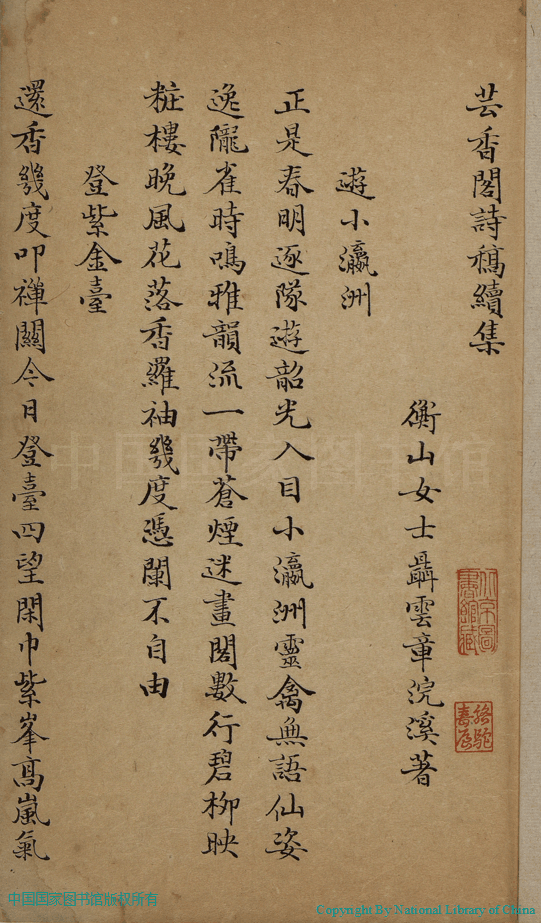 芸香閣詩稿續集
衡山女士聶雲章浣溪著
遊小瀛洲
正是春明逐隊遊韶光入目小瀛洲靈禽無語仙姿
逸隴雀時鳴雅韻流一帶蒼煙迷畫閣數行碧柳映
粧樓晚風花落香羅袖幾度憑闌不自由
登紫金臺
還香幾度叩禪關今日登臺四望閑巾紫峯高嵐氣
中国国家图书馆
中国国家图书馆版权所有
Copyright By National Library of China